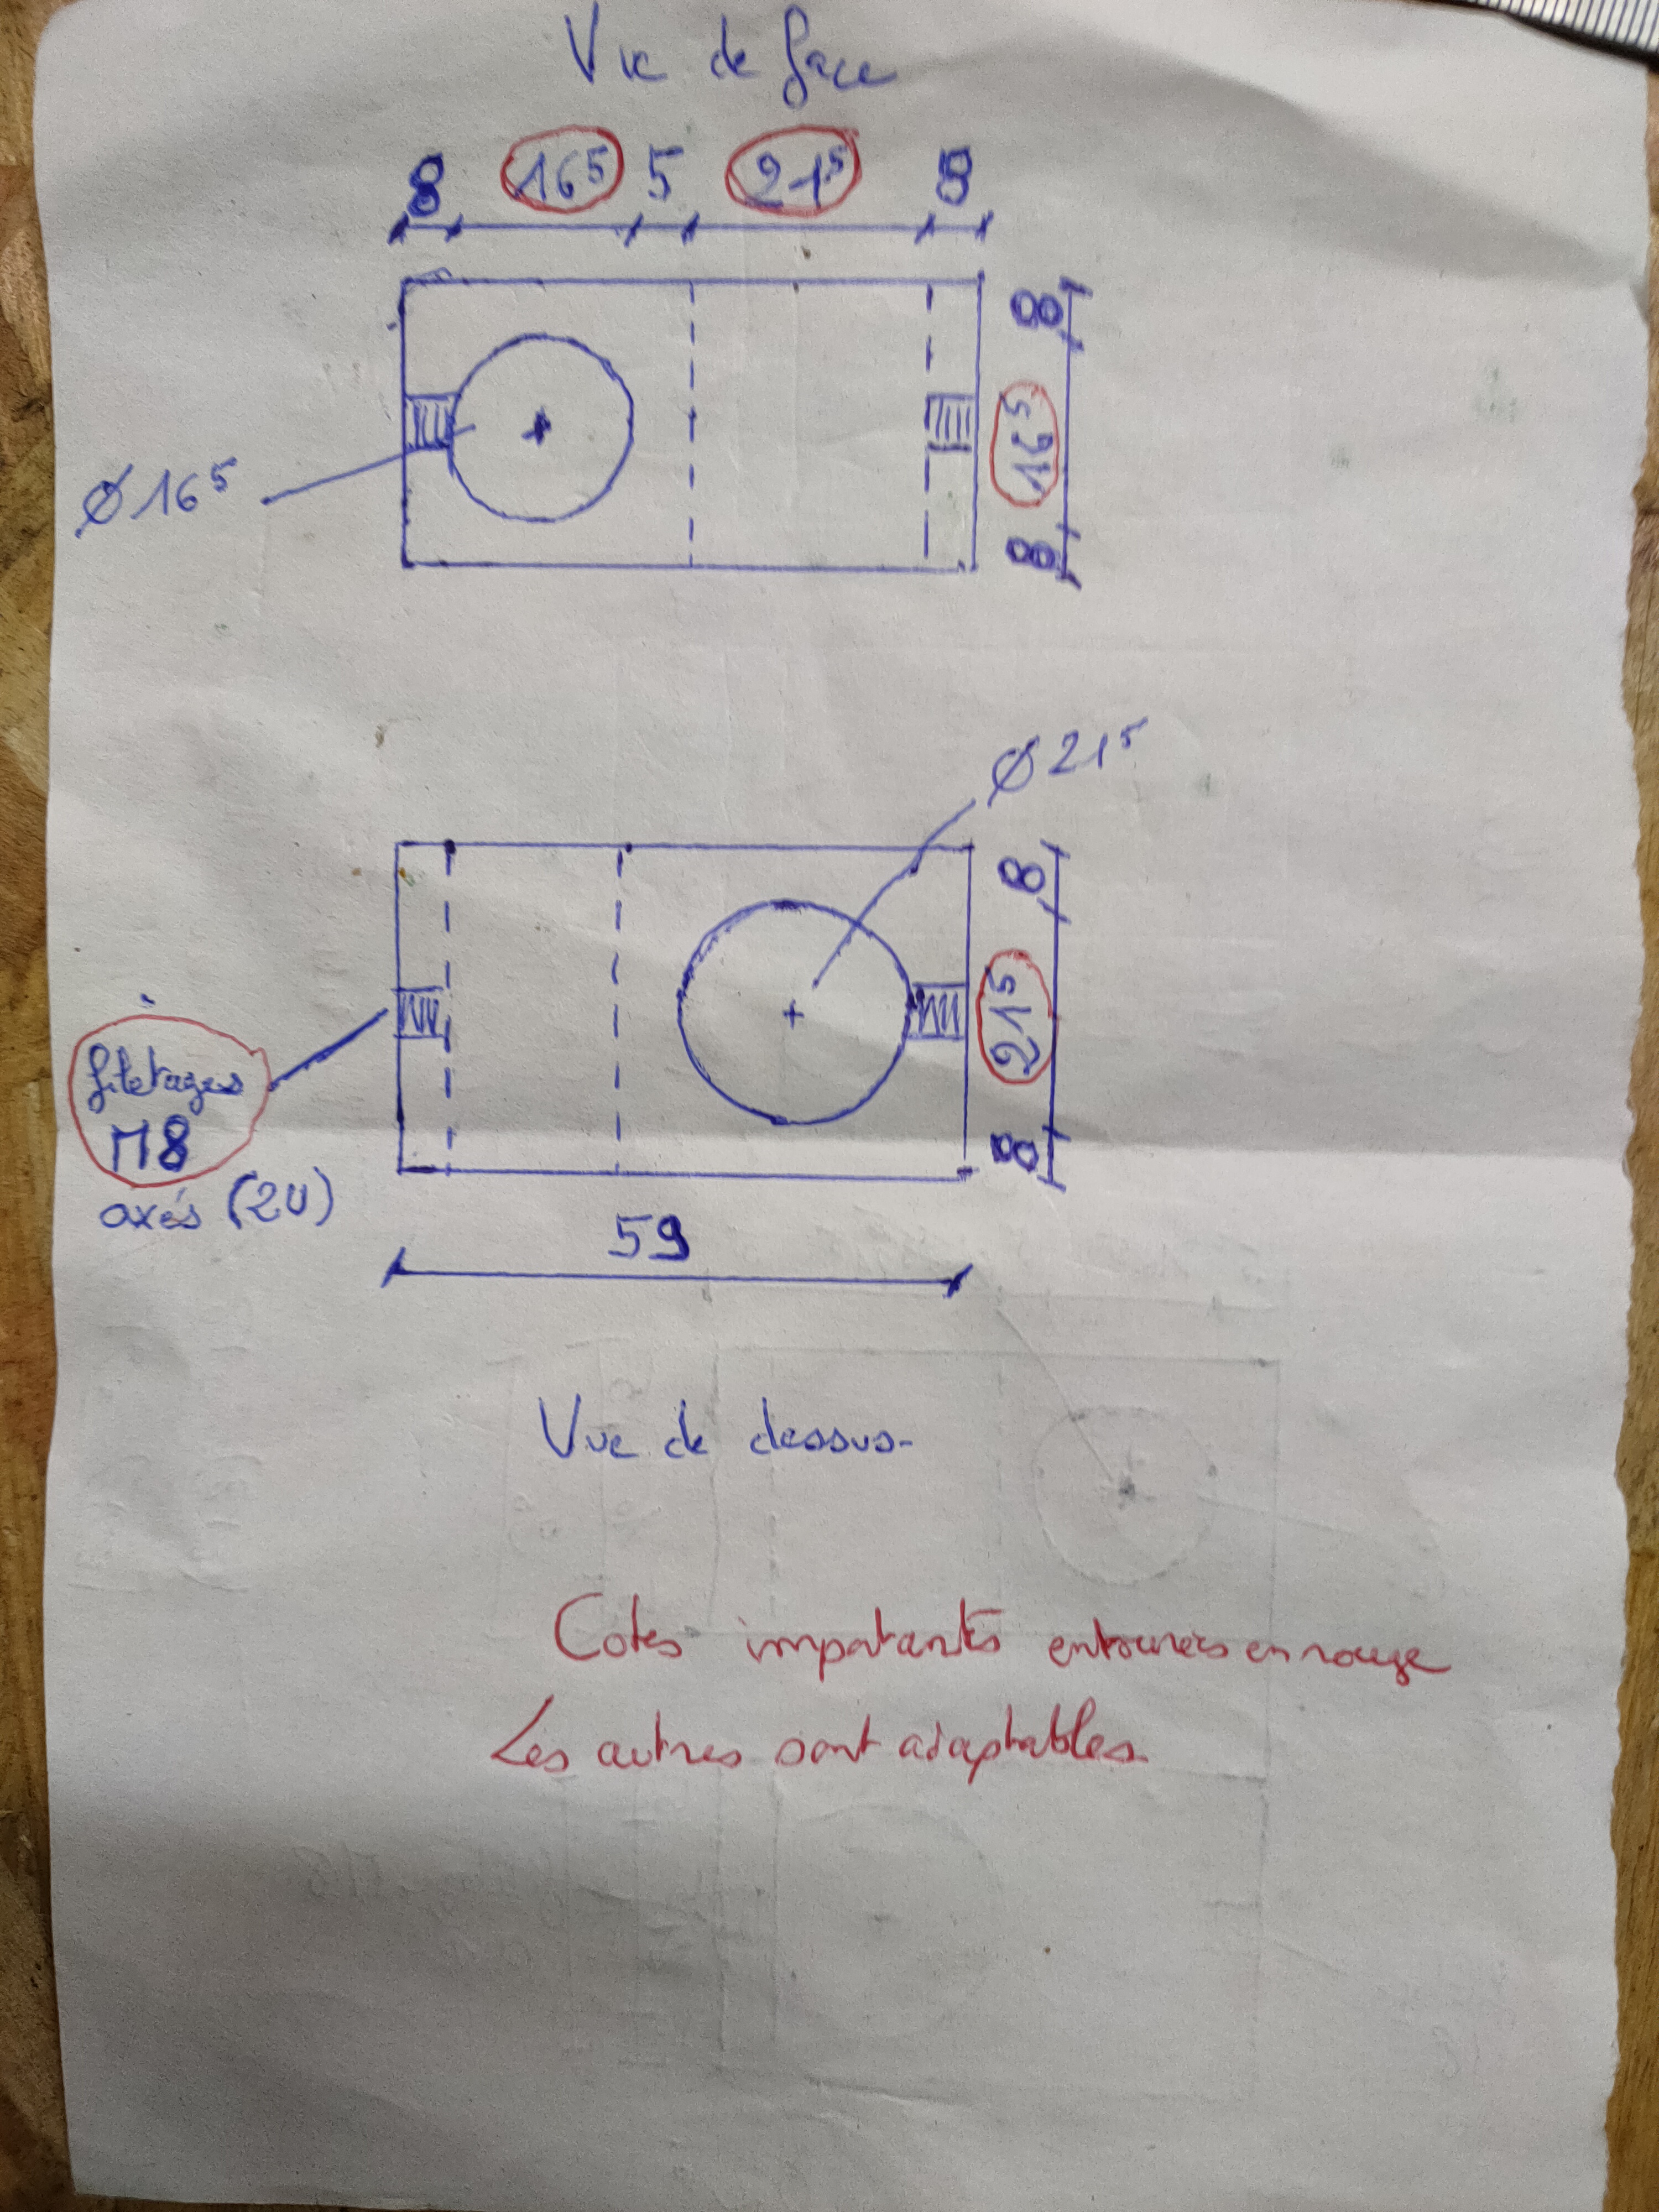 Vue de face
8 16⁵ 5 21⁵ 8
8
16⁵
8
Ø 16⁵
Ø 21⁵
8
21⁵
8
filetages
M8
axés (2U)
59
Vue de dessus-
Cotes importantes entourées en rouge
Les autres sont adaptables.